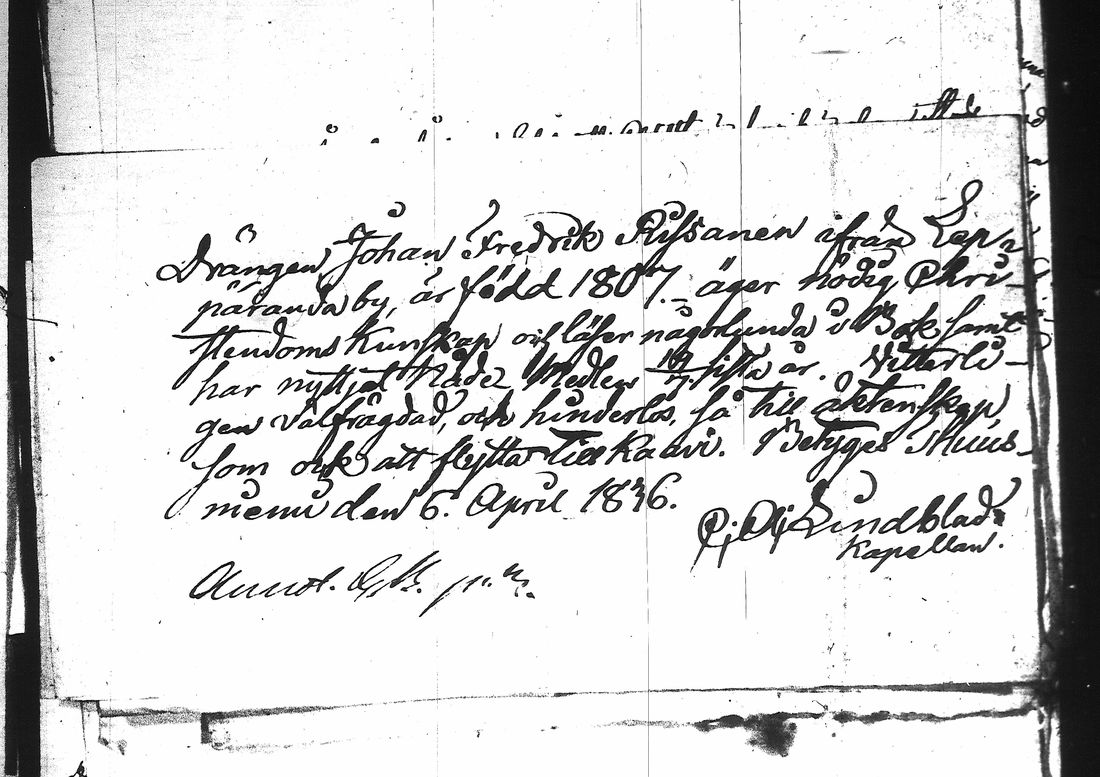 Drängen Johan Fredrik Rissanen ifrån Lep-
päranda by, är född 1807. äger nödig Chri-
stendoms Kunskap och läser någorlunda i Bok samt
har nyttjat Nåde Medlen sistl. år. Vitterli-
gen välfrägdad, och hinderlös, så till äktenskap
som ock att flytta till Kaavi. Betygas Thuus-
niemi den 6. April 1836.
Lindblad
Kapellan.
Annot.